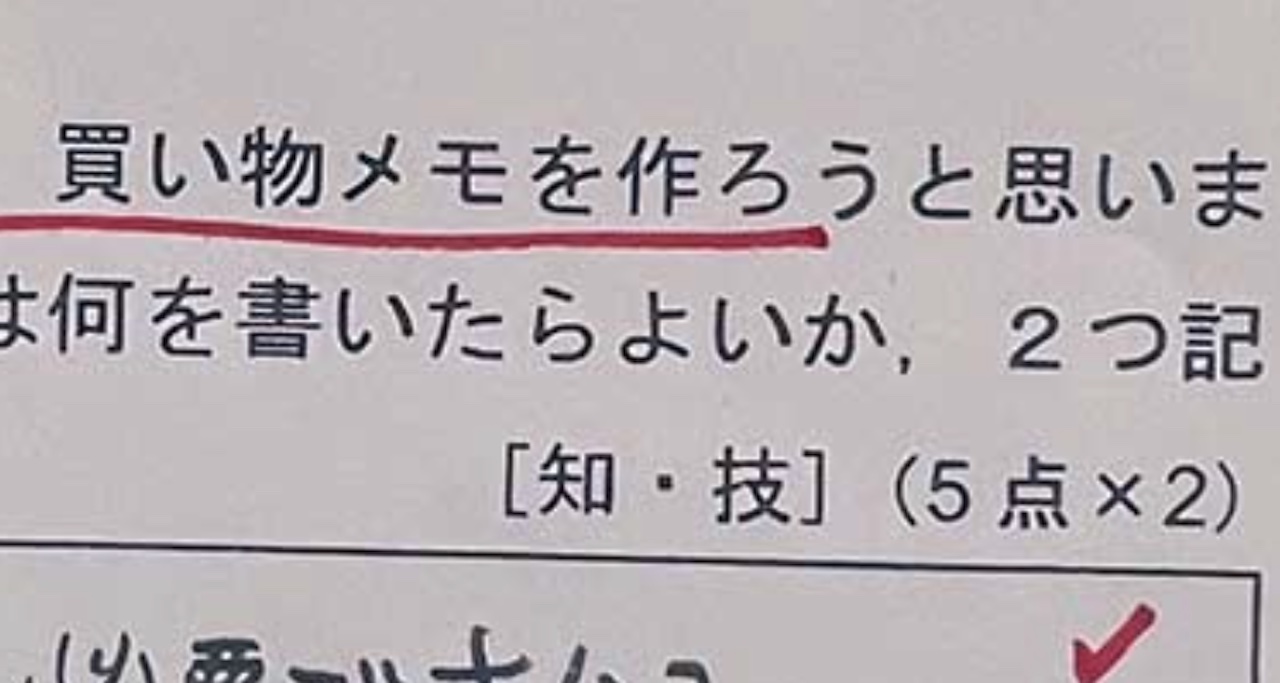 買い物メモを作ろうと思いま
は何を書いたらよいか，２つ記
［知・技］（5点×2）